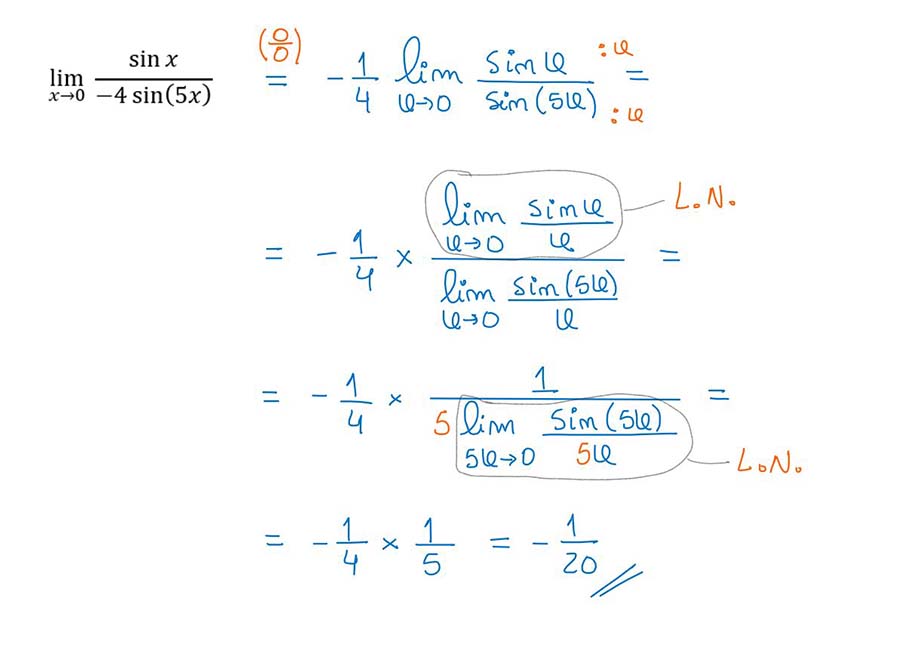 lim x→0 sin x / −4 sin(5x) (0/0) = − 1/4 lim x→0 sin x / sin(5x) :x :x =
= − 1/4 × lim x→0 sin x / x / lim x→0 sin(5x) / x = L.N.
= − 1/4 × 1 / 5 lim 5x→0 sin(5x) / 5x = L.N.
= − 1/4 × 1/5 = − 1/20